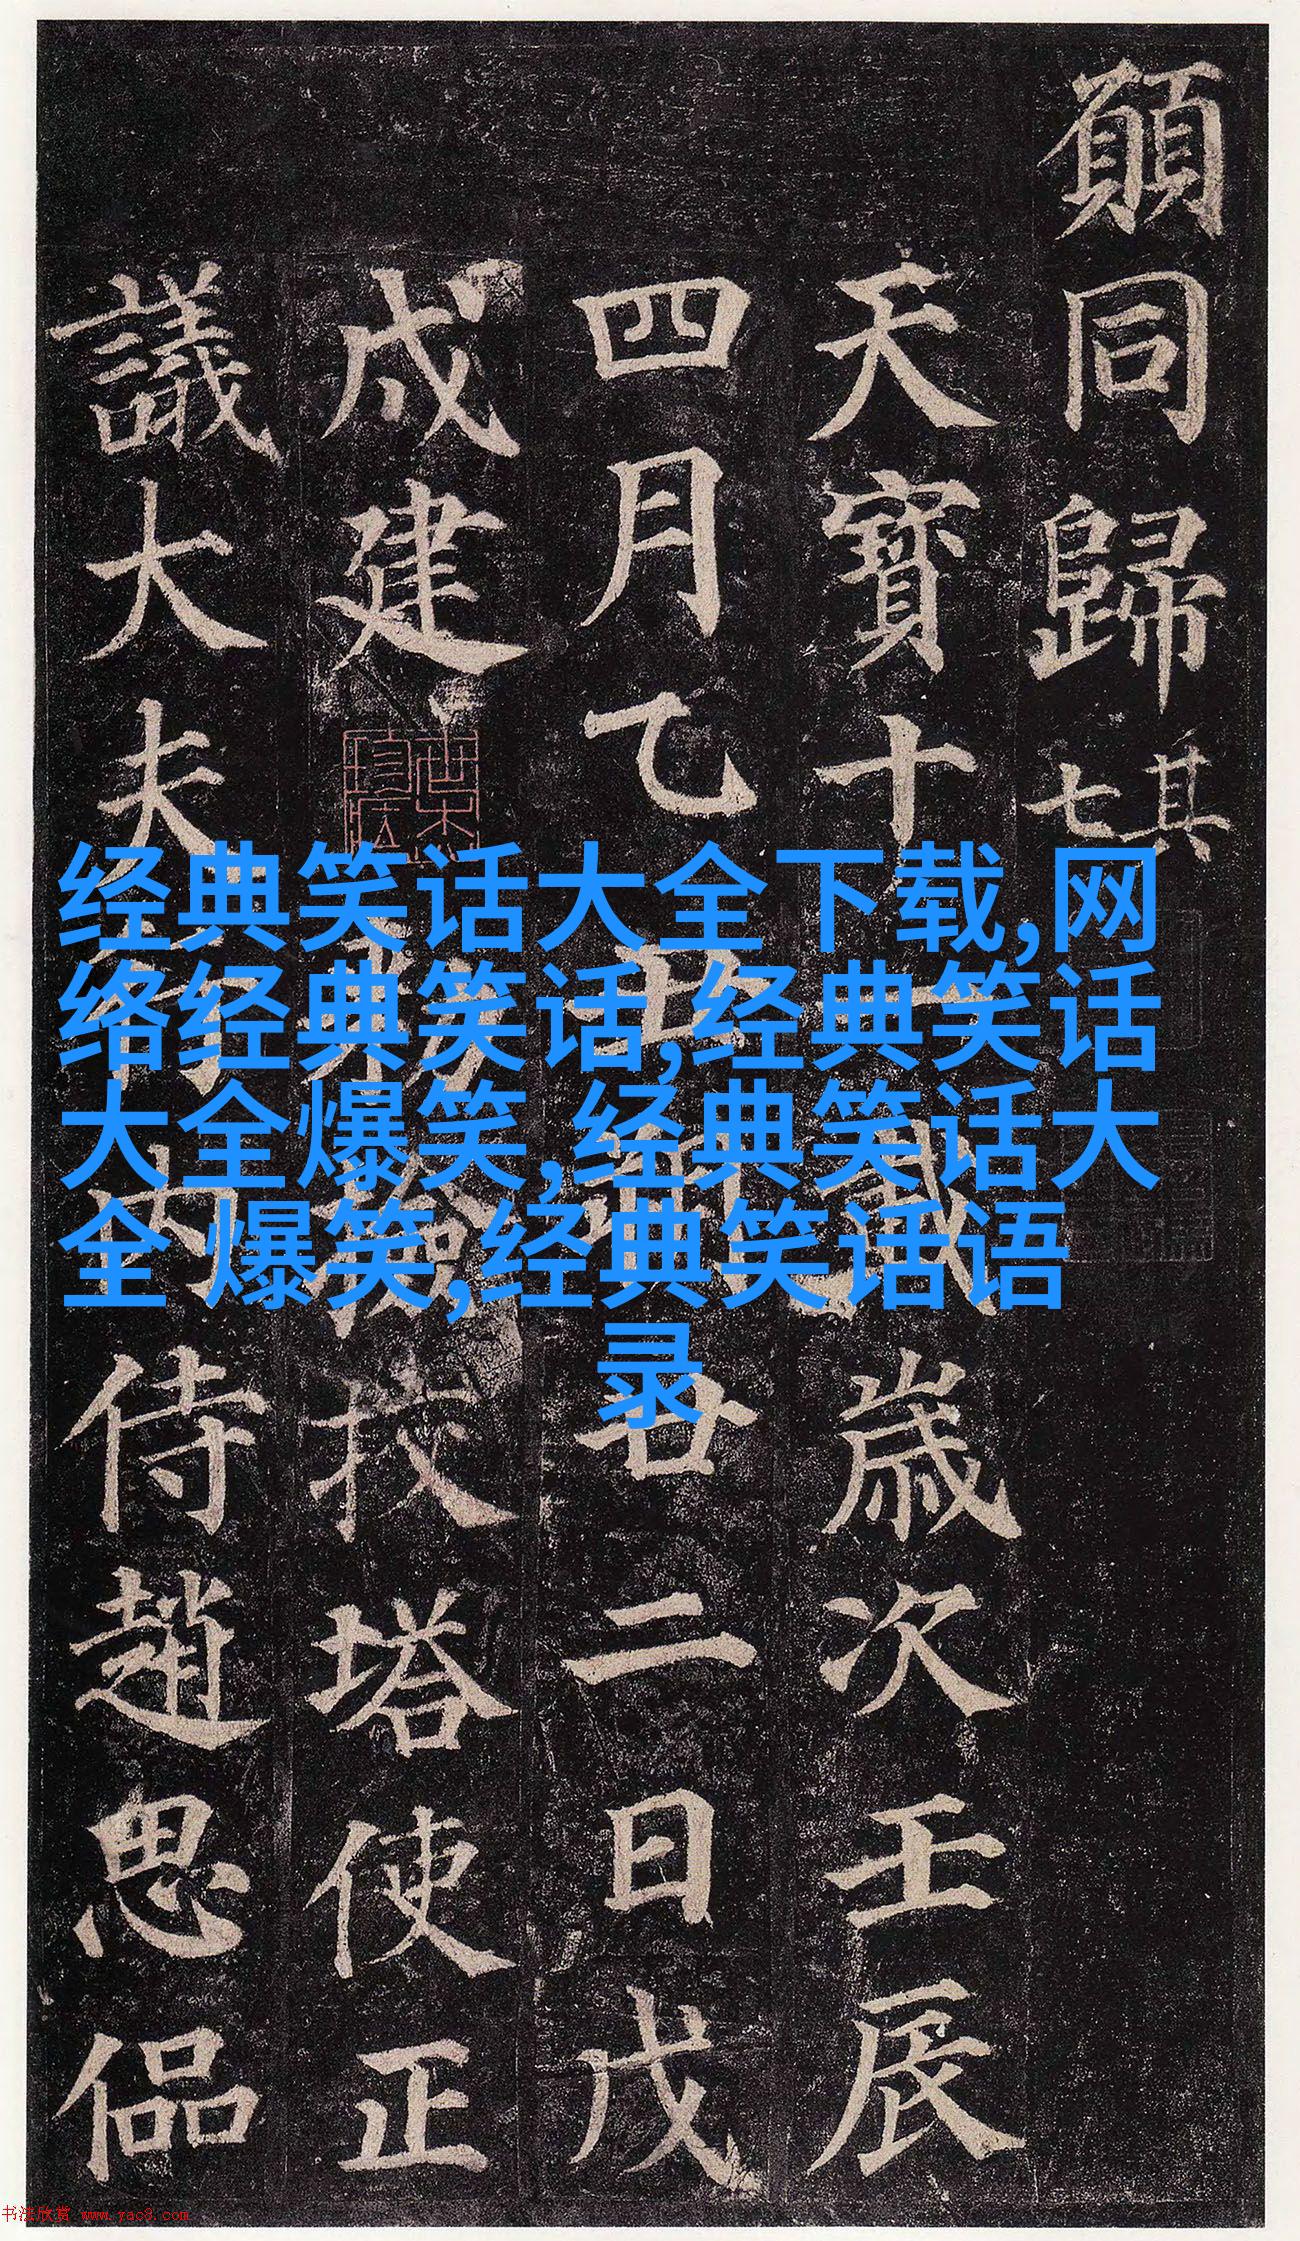 願同歸其七
天寶十一載歲次壬辰
四月乙丑朔廿二日戊
戌建勅檢挍塔使正
議大夫行內侍趙思偘
经典笑话大全下载,网
络经典笑话,经典笑话
大全爆笑,经典笑话大
全 爆笑,经典笑话语
录
书法欣赏 www.yac8.com